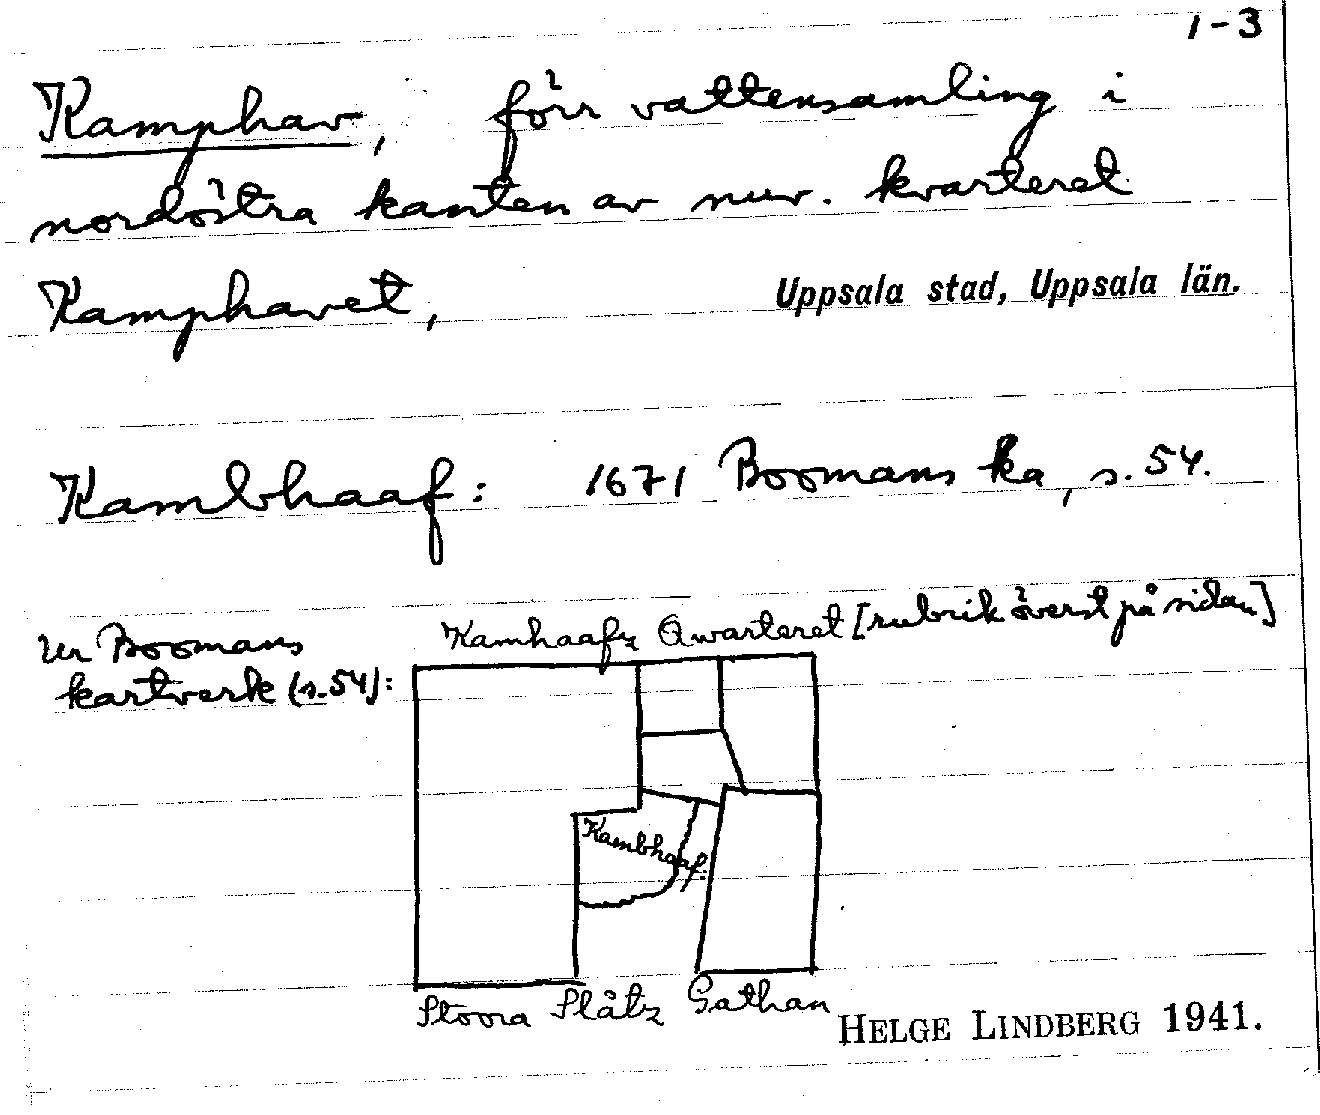 1-3
Kamphav, förr vattensamling i
nordöstra kanten av nuv. kvarteret
Kamphavet,
Uppsala stad, Uppsala län.
Kambhaaf: 1671 Boomans ka, s. 54.
Ur Boomans
kartverk (s. 54):
Kamhaafz Qwarteret [rubrik överst på sidan]
Kambhaaf.
Stoora Slåtz Gathan
HELGE LINDBERG 1941.